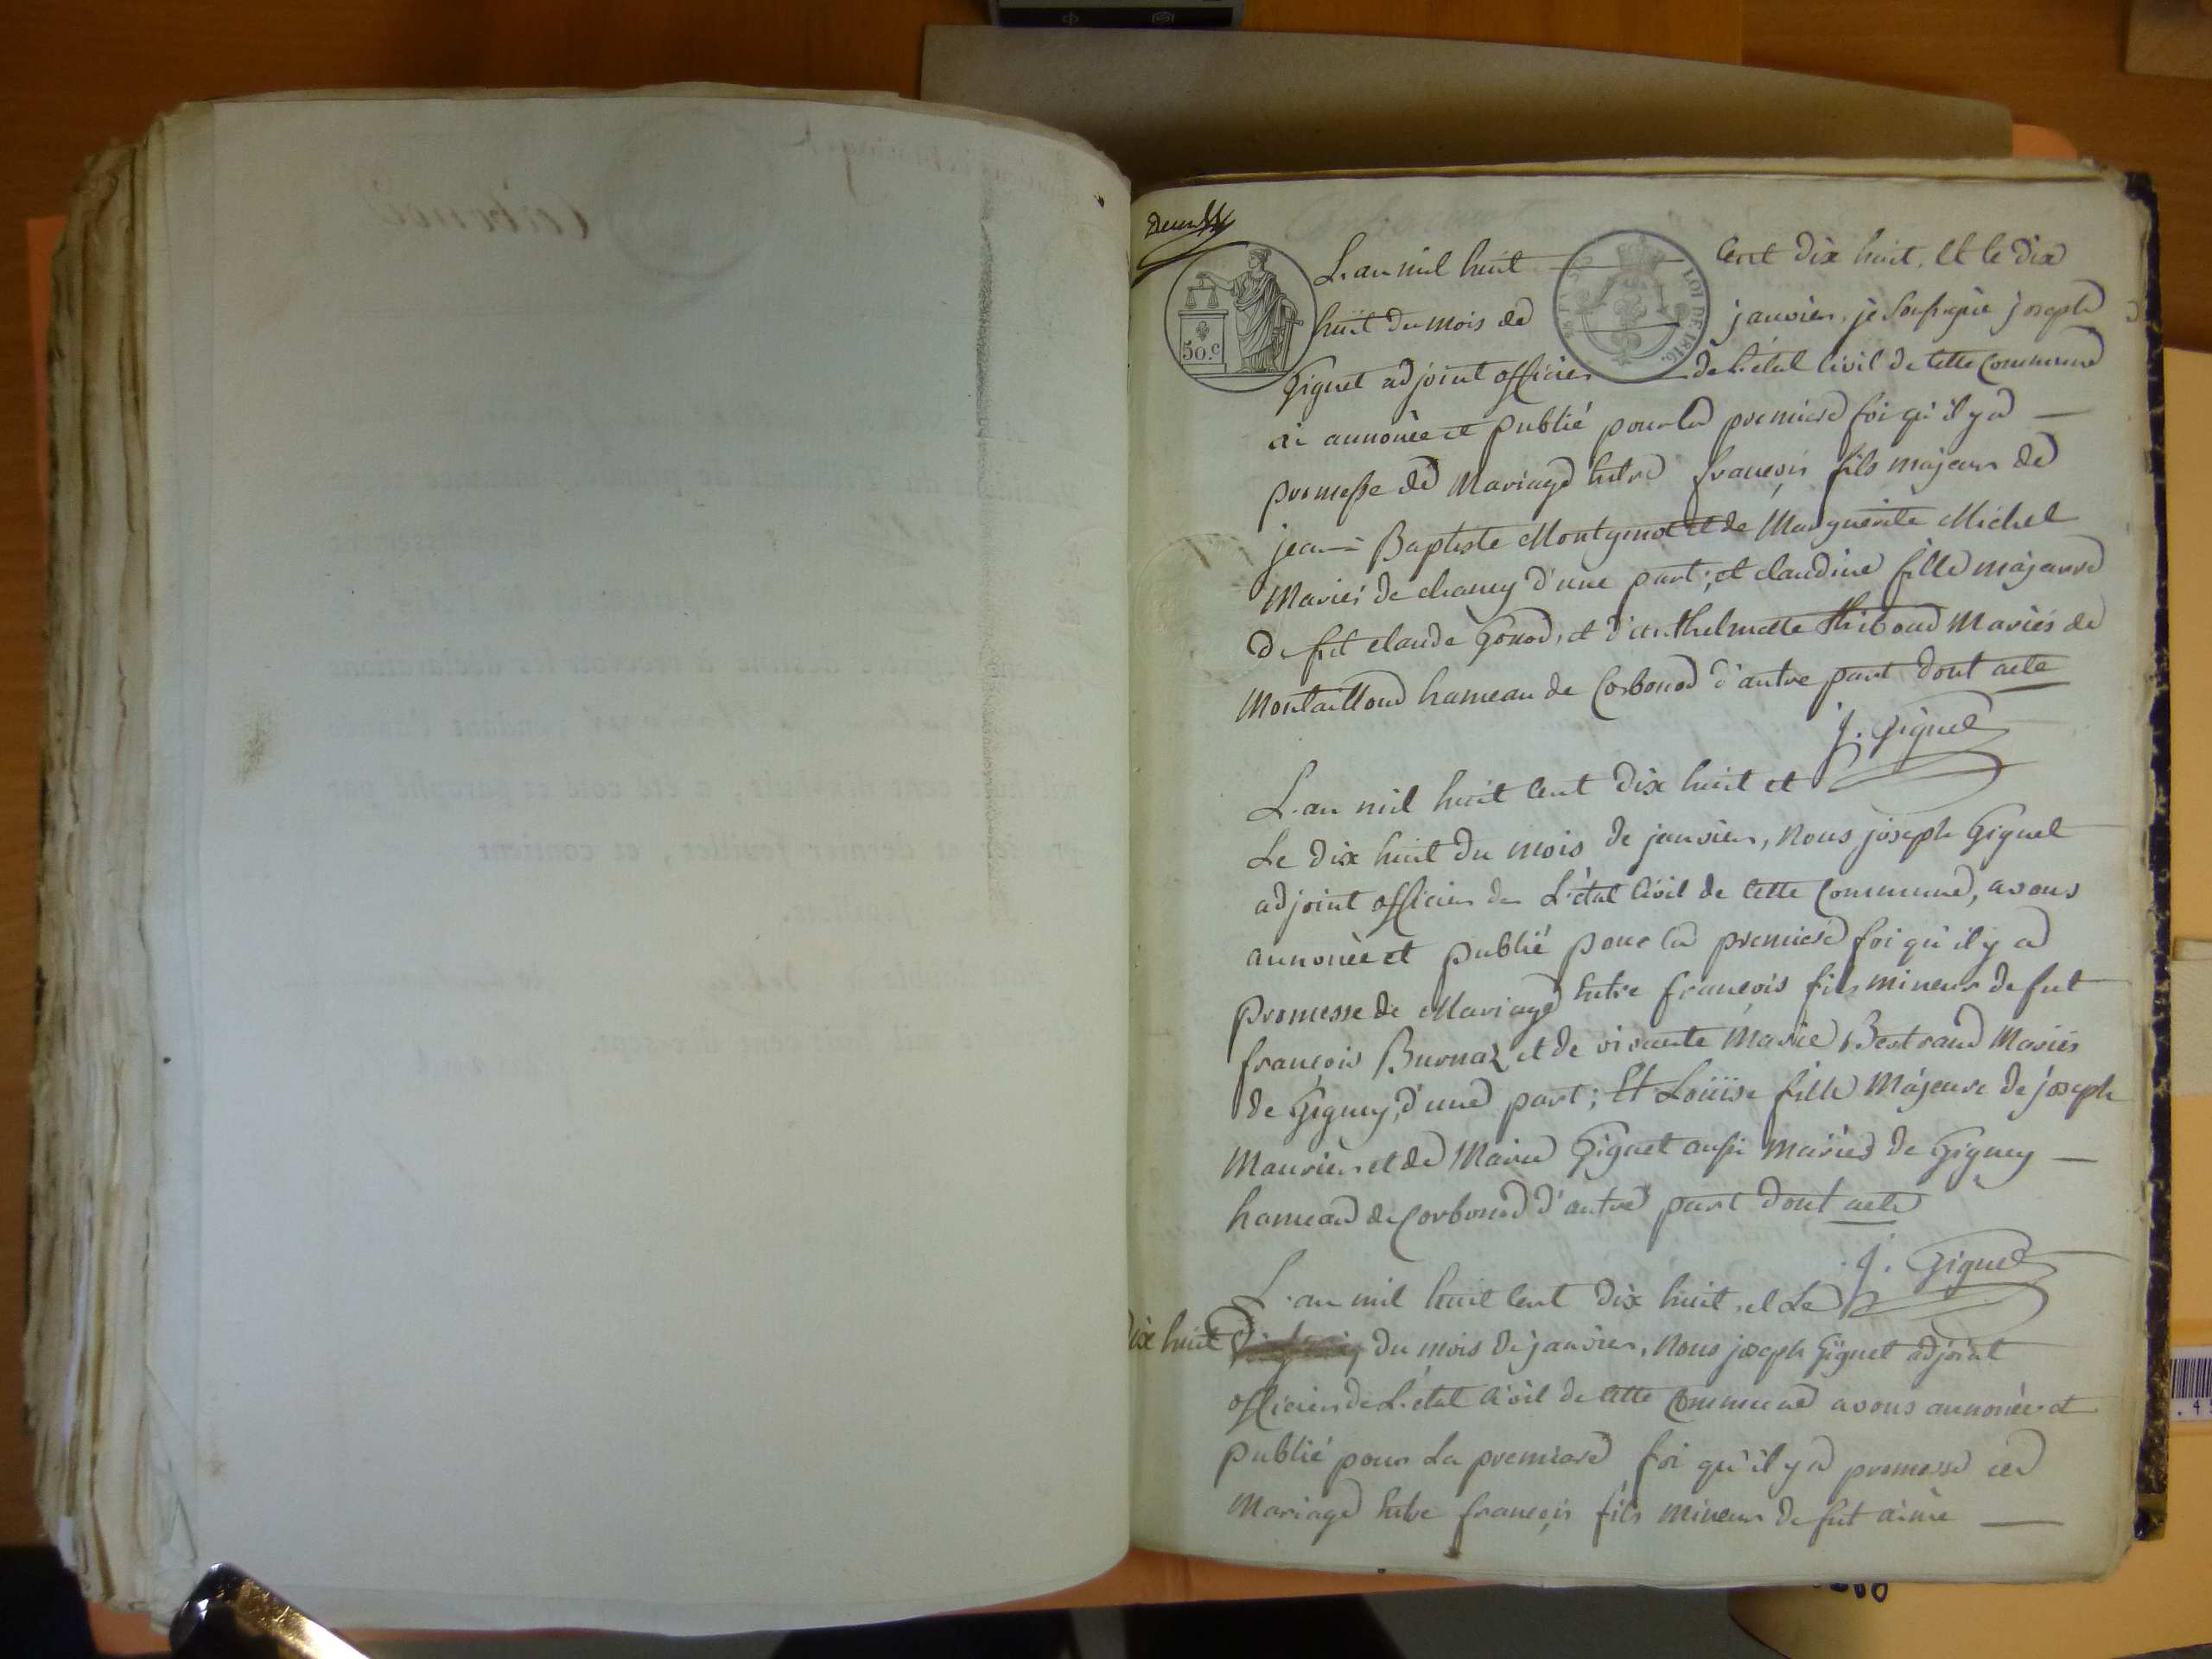 L'an mil huit cent dix huit, et le dix
huit du mois de janvier, je soussigné joseph
Giguet adjoint officier de l'état civil de cette commune
ai annoncé et publié pour la premiere foi qu'il y a
promesse de Mariage Entre françois fils majeur de
jean-Baptiste Montgenot et de Marguerite Michel
Mariés de chaney d'une part; et claudine fille majeure
de fut claude Gonod, et d'anthelmette thiboud Mariés de
Montailloud hameau de Corbonod d'autre part dont acte
J. Giguet
L'an mil huit cent dix huit et
Le dix huit du mois de janvier, nous joseph Giguet
adjoint officier de L'état civil de cette Commune, avons
annoncé et publié pour la premiere foi qu'il y a
Promesse de Mariage Entre françois fils mineur de fut
françois Burnaz et de vivante Marie Bertrand Mariés
de Gigney, d'une part; Et Louise fille Majeure de joseph
Maurier et de Marie Giguet aussi Mariés de Gigney
hameau de Corbonod d'autre part dont acte
J. Giguet
L'an mil huit cent dix huit, et Le
dix huit du mois de janvier, nous joseph Giguet adjoint
officier de L'état civil de cette Commune avons annoncé et
publié pour La premiere foi qu'il y a promesse de
Mariage Entre françois fils mineur de fut aimé
50.c
LOI DE 1816.